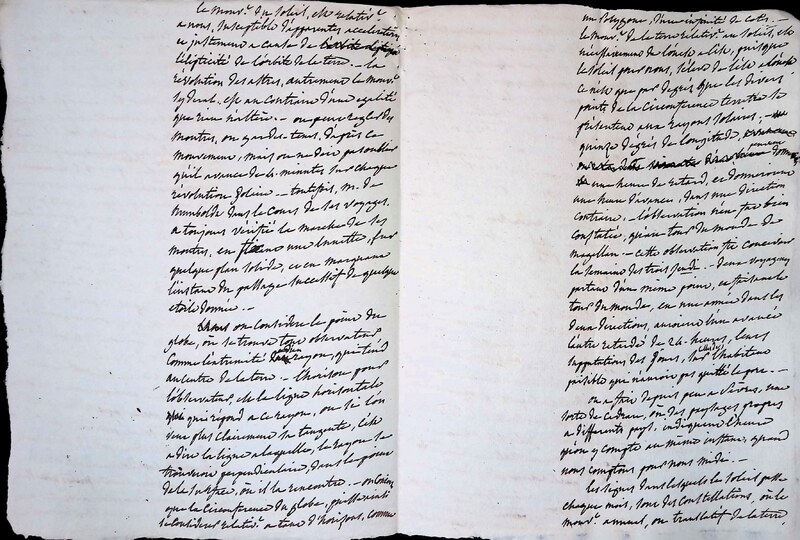 le mouv.t du soleil, est relativ.t
a nous, susceptible d'apparentes accelerations
et justement a cause de
l'élipticité de l'orbite de la terre. – la
revolution des astres, autrement le mouv.t
syderal, est au contraire d'une egalité
que rien n'altere. – on peut regler des
montres, ou gardes tems, d'après ce
mouvement, mais on ne doit pas oublier
qu'il avance de 4 minutes sur chaque
révolution solaire. – toutefois, M. de
Humboldt dans le cours de ses voyages,
a toujours vérifié la marche de ses
montres, en fixant une lunette, sur
quelque plan solide, et en marquant
l'instant du passage successif de quelque
etoile donnée. –
on considere le point du
globe, où se trouve tout observateur
comme l'extremité d'un rayon, qui tend
au centre de la terre. – l'horison pour
l'observateur, est la ligne horisontale
qui répond a ce rayon, ou si l'on
veut plus clairement sa tangente, c'est
a dire la ligne a laquelle, le rayon se
trouveroit perpendiculaire, dans le point
de la surface, où il la rencontre. – on conçoit
que la circonference du globe, puisse ainsi
se considerer relativ.t a tant d'horisons, comme
un polygone, d'une infinité de cotés. –
le mouv.t de la terre relativ.t au soleil, est
necessairement de l'ouest a l'est, puisque
le soleil pour nous, se leve de l'est a l'ouest
ce n'est que par degrés que les divers
points de la circonference terrestre se
présentent aux rayons solaires; –
quinze dégrés de longitude,
donnent
une heure de retard, et donneroient
une heure d'avance, dans une direction
contraire. – l'observation n'en fut bien
constatée, qu'au tour du monde de
magellan. – cette observation fit
la semaine des trois jeudis. – deux voyageurs
partant d'un même point, et faisant le
tour du monde, en une année dans les
deux directions, auroient l'un avancé
l'autre retardé de 24 heures, leurs
supputations des jours, sur l'habitant
paisible qui n'auroit pas quitté le pole. –
on a fait depuis peu a Sèvres, une
sorte de cadran, où des paysages propres
a differents pays, indiquent l'heure
qu'on y compte au même instant, quand
nous comptons pour nous midi. –
les signes dans lesquels le soleil passe
chaque mois, sont des constellations, où le
mouv.t annuel, ou translatif de la terre,